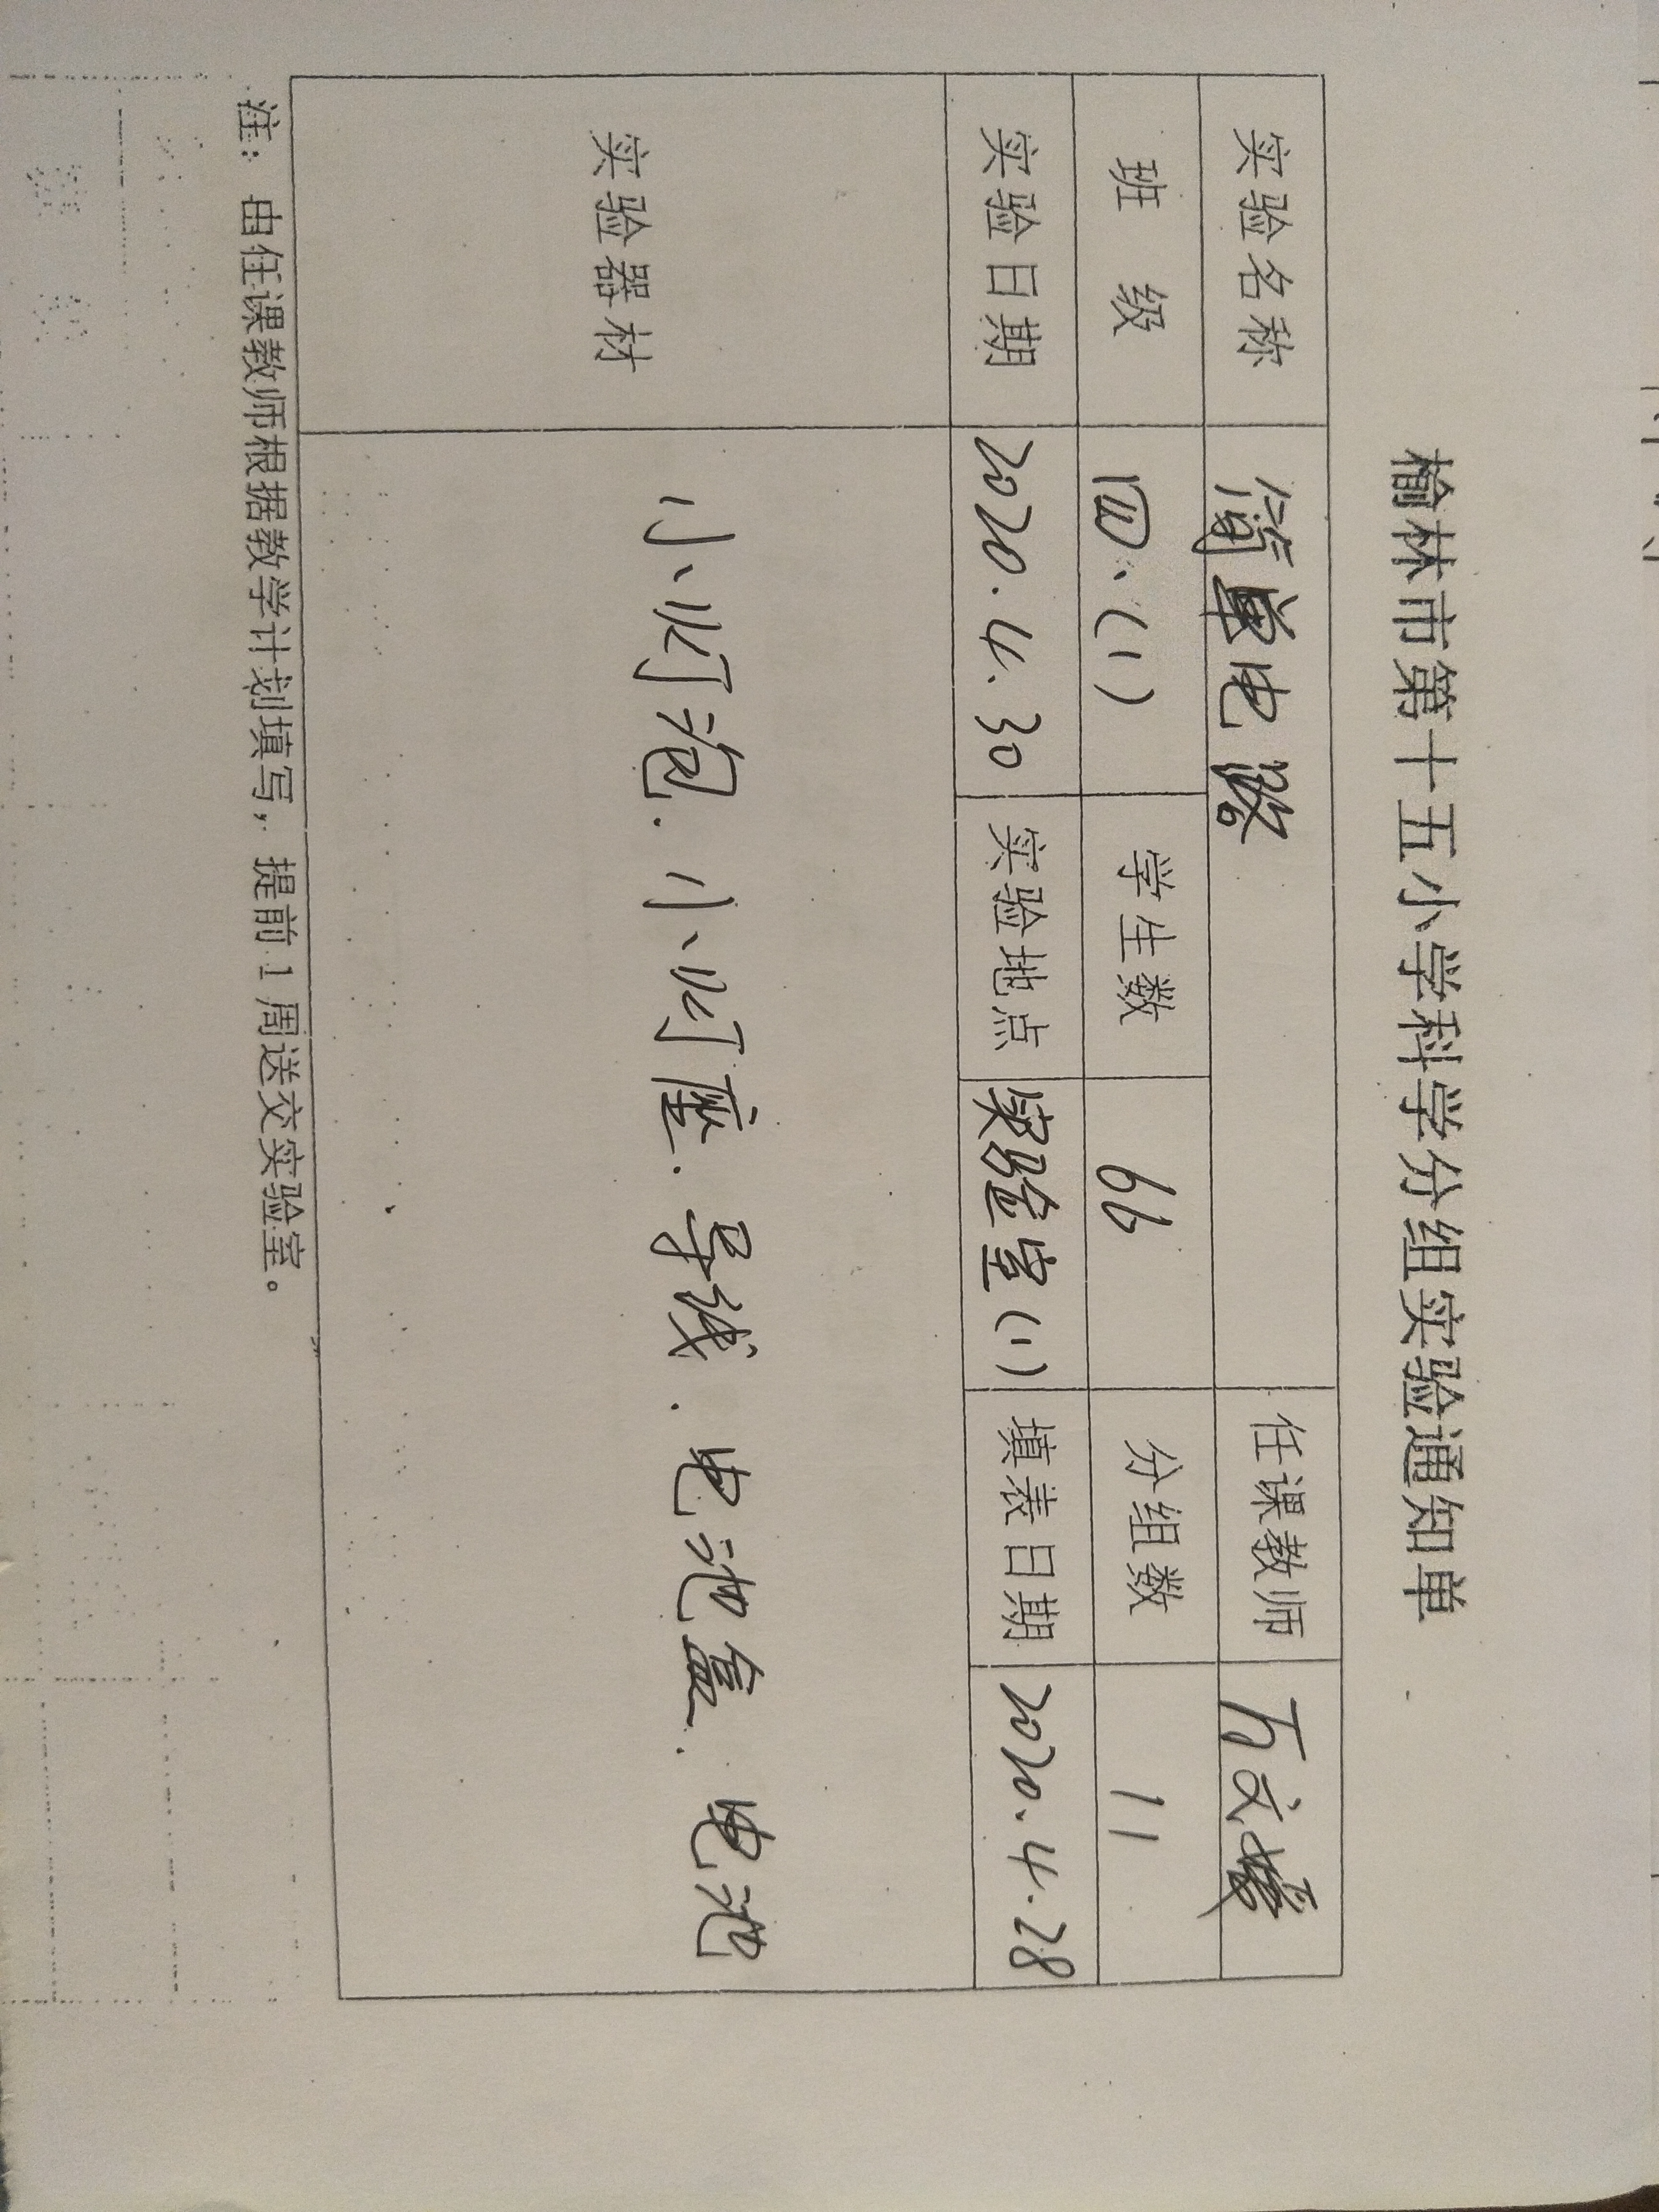 榆林市第十五小学科学分组实验通知单
实验名称 简单电路 任课教师
班 级 四、(1) 学生数 66 分组数 11
实验日期 2020.4.30 实验地点 实验室(1) 填表日期 2020.4.28
实验器材 小灯泡、小灯座、导线、电池盒、电池
注：由任课教师根据教学计划填写，提前1周送交实验室。